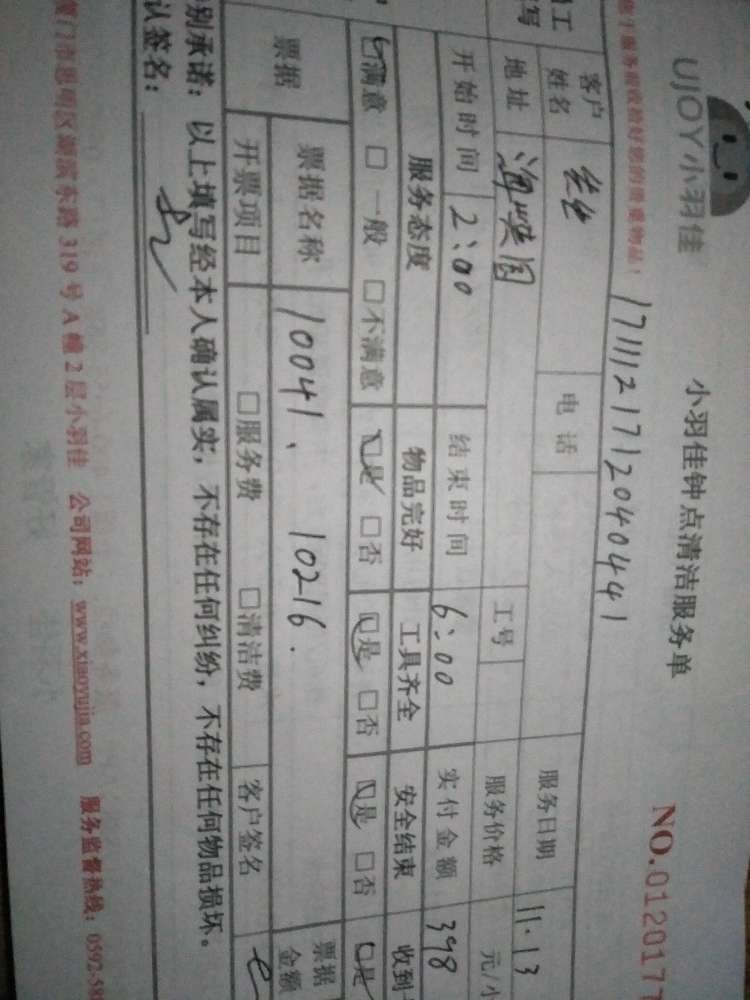 UJOY小羽佳
小羽佳钟点清洁服务单
NO.012017
于服务前收拾好您的贵重物品!
1711121712040441
客户姓名
电话
服务日期 11.13
地址
工号
服务价格 元/小
开始时间 2:00 结束时间 6:00 实付金额 398
服务态度 物品完好 工具齐全 安全结束 收到
☑满意 □一般 □不满意 ☑是 □否 ☑是 □否 ☑是 □否 ☑是
票据 票据名称 10041、10216. 票据金额
开票项目 □服务费 □清洁费 客户签名
别承诺:以上填写经本人确认属实,不存在任何纠纷,不存在任何物品损坏。
认签名:
厦门市思明区湖滨东路319号A幢2层小羽佳 公司网站:www.xiaoyujia.com 服务监督热线:0592-58